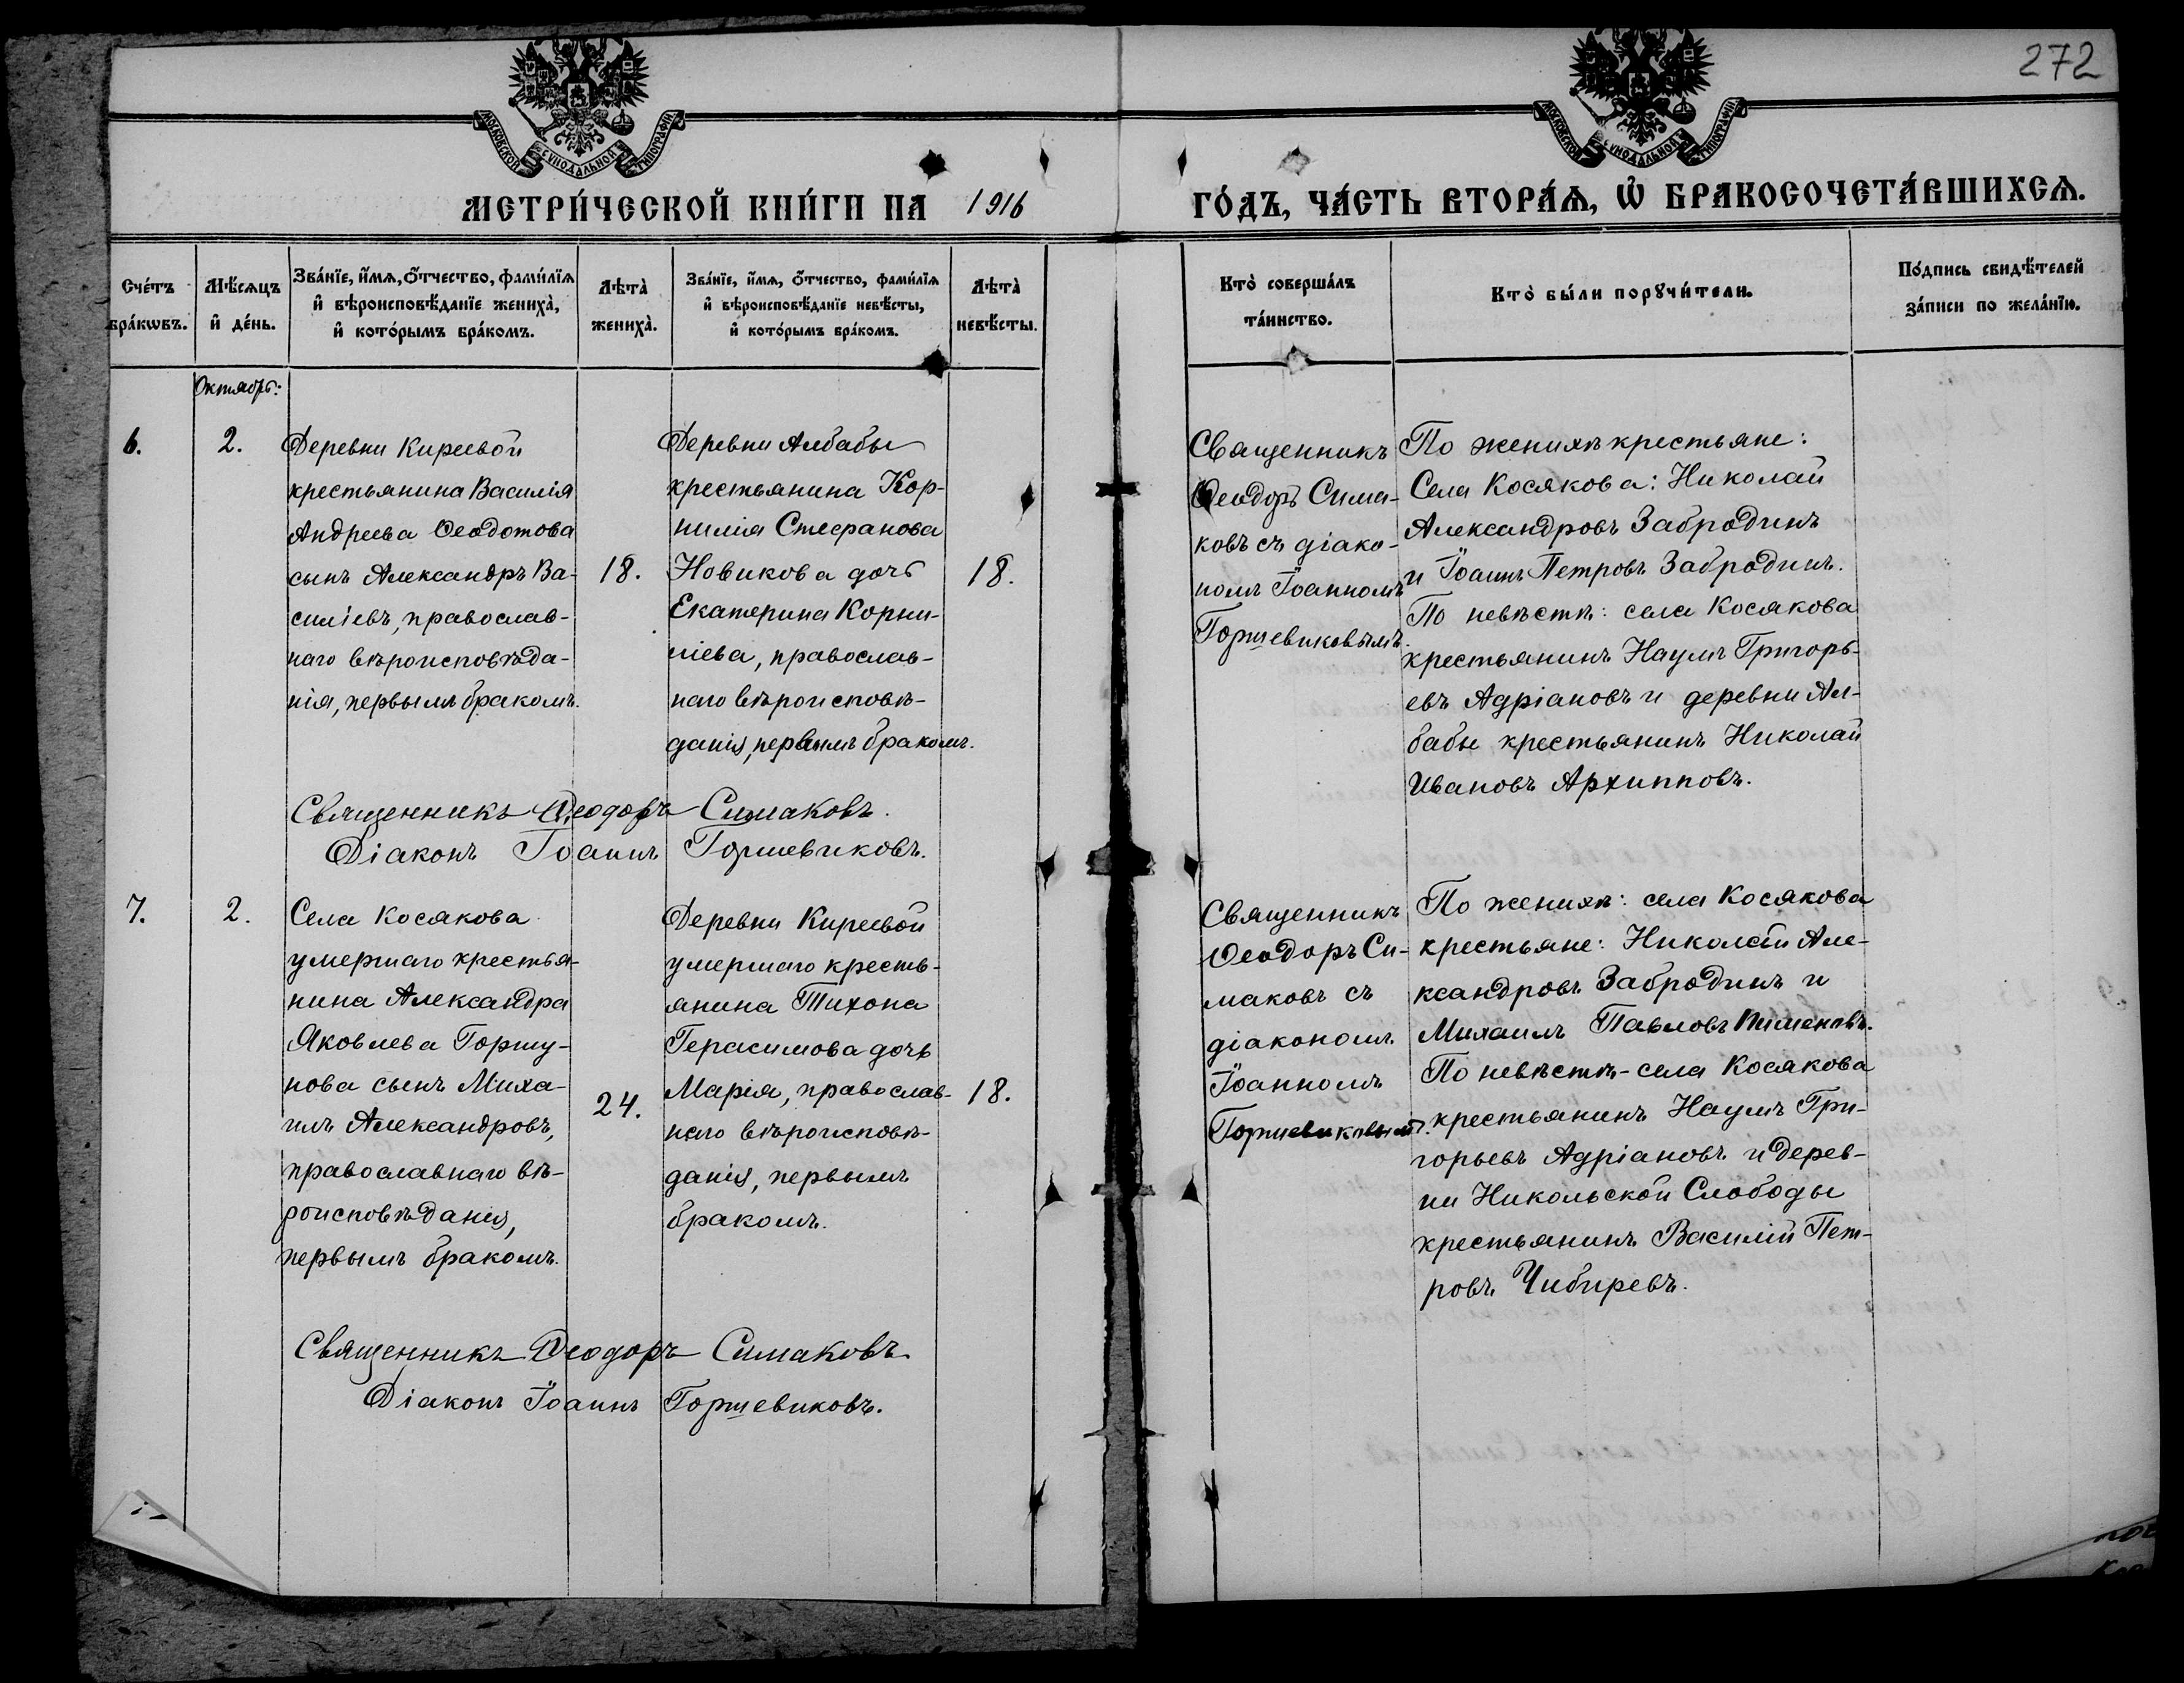 272
МОСКОВСКОЙ СУНОДАЛЬНОЙ ТИПОГРАФІИ
МОСКОВСКОЙ СУНОДАЛЬНОЙ ТИПОГРАФІИ
МЕТРИ́ЧЕСКОЙ КНИ́ГИ НА 1916
ГО́ДЪ, ЧА́СТЬ ВТОРА́Ѧ, Ѡ҆ БРАКОСОЧЕТА́ВШИХСѦ.
Сче́тъ
бра́кѡвъ.
Мѣ́сѧцъ
и҆ де́нь.
Зва́нїе, и҆́мѧ, ѻ҆́тчество, фами́лїѧ
и҆ вѣроисповѣ́данїе жениха̀,
и҆ кото́рымъ бра́комъ.
Лѣта̀
жениха̀.
Зва́нїе, и҆́мѧ, ѻ҆́тчество, фами́лїѧ
и҆ вѣроисповѣ́данїе невѣ́сты,
и҆ кото́рымъ бра́комъ.
Лѣта̀
невѣ́сты.
Кто̀ соверша́лъ
та́инство.
Кто̀ бы́ли порꙋчи́тели.
По́дпись свидѣ́телей
за́писи по жела́нїю.
Октябрь:
6.
2.
Деревни Киреевой
крестьянина Василія
Андреева Ѳеодотова
сынъ Александръ Ва-
силіевъ, православ-
наго вѣроисповѣда-
нія, первымъ бракомъ.
18.
Деревни Албабы
крестьянина Кор-
нилія Стефанова
Новикова дочь
Екатерина Корни-
ліева, православ-
наго вѣроисповѣ-
данія, первымъ бракомъ.
18.
Священникъ
Ѳеодоръ Сима-
ковъ съ діако-
номъ Іоанномъ
Горшевиковымъ.
По женихѣ крестьяне:
Села Косякова: Николай
Александровъ Забродинъ
и Іоаннъ Петровъ Забродинъ.
По невѣстѣ: села Косякова
крестьянинъ Наумъ Григорь-
евъ Адріановъ и деревни Ал-
бабы крестьянинъ Николай
Ивановъ Архипповъ.
Священникъ Ѳеодоръ Симаковъ.
Діаконъ Іоаннъ Горшевиковъ.
7.
2.
Села Косякова
умершаго крестья-
нина Александра
Яковлева Горшу-
нова сынъ Миха-
илъ Александровъ,
православнаго вѣ-
роисповѣданія,
первымъ бракомъ.
24.
Деревни Киреевой
умершаго кресть-
янина Тихона
Герасимова дочь
Марія, православ-
наго вѣроисповѣ-
данія, первымъ
бракомъ.
18.
Священникъ
Ѳеодоръ Си-
маковъ съ
діакономъ
Іоанномъ
Горшевиковымъ.
По женихѣ: села Косякова
крестьяне: Николай Але-
ксандровъ Забродинъ и
Михаилъ Павловъ Пименовъ.
По невѣстѣ - села Косякова
крестьянинъ Наумъ Гри-
горьевъ Адріановъ и дерев-
ни Никольской Слободы
крестьянинъ Василій Пет-
ровъ Чибиревъ.
Священникъ Ѳеодоръ Симаковъ
Діаконъ Іоаннъ Горшевиковъ.